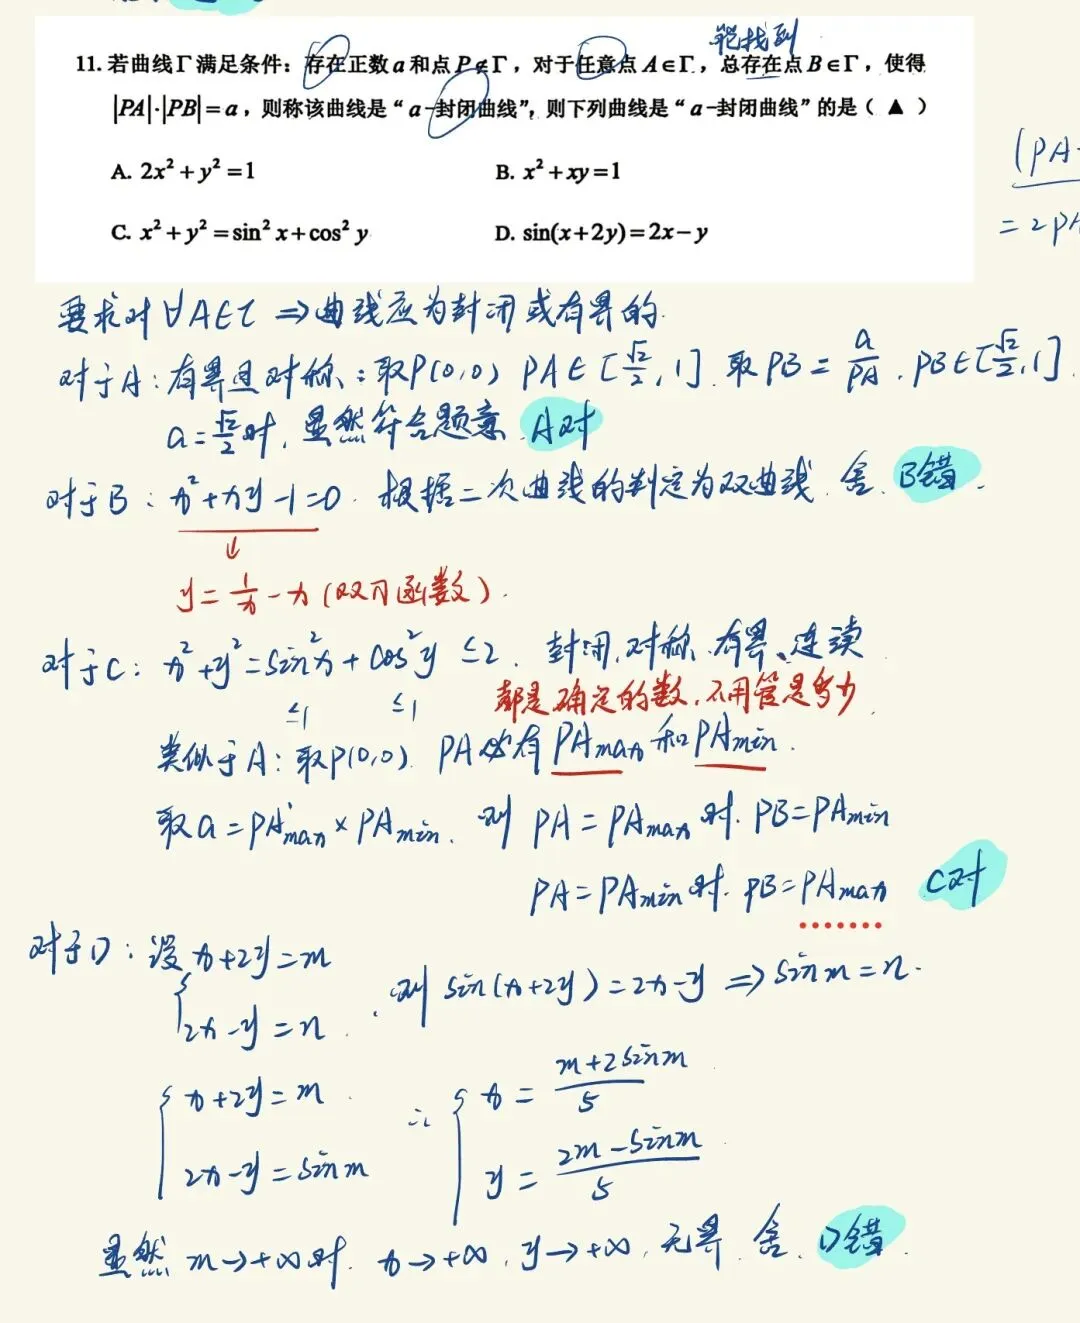 能找到
11. 若曲线Γ满足条件：存在正数a和点P∉Γ，对于任意点A∈Γ，总存在点B∈Γ，使得
|PA|·|PB|=a，则称该曲线是“a-封闭曲线”，则下列曲线是“a-封闭曲线”的是（ ▲ ）
A. 2x²+y²=1
B. x²+xy=1
C. x²+y²=sin²x+cos²y
D. sin(x+2y)=2x-y
(PA
=2PA
要求对∀A∈τ ⇒曲线应为封闭或有界的.
对于A：有界且对称：取P(0,0) PA∈[√2/2,1]. 取PB=a/PA. PB∈[√2/2,1].
a=√2/2时，显然符合题意 A对
对于B：x²+xy-1=0. 根据二次曲线的判定为双曲线. 舍. B错.
↓
y=1/x-x (双刀函数).
对于C：x²+y²=sin²x+cos²y ≤2. 封闭,对称,有界、连续
≤1 ≤1 都是确定的数,不用管是多少.
类似于A：取P(0,0) PA必有PAmax和PAmin.
取a=PAmax×PAmin. 则 PA=PAmax时. PB=PAmin
PA=PAmin时. PB=PAmax C对
对于D：设{x+2y=m
2x-y=n. 则 sin(x+2y)=2x-y ⇒sinm=n.
{x+2y=m ∴{x=(m+2sinm)/5
2x-y=sinm y=(2m-sinm)/5
显然 m→+∞时. x→+∞, y→+∞, 无界. 舍. D错.